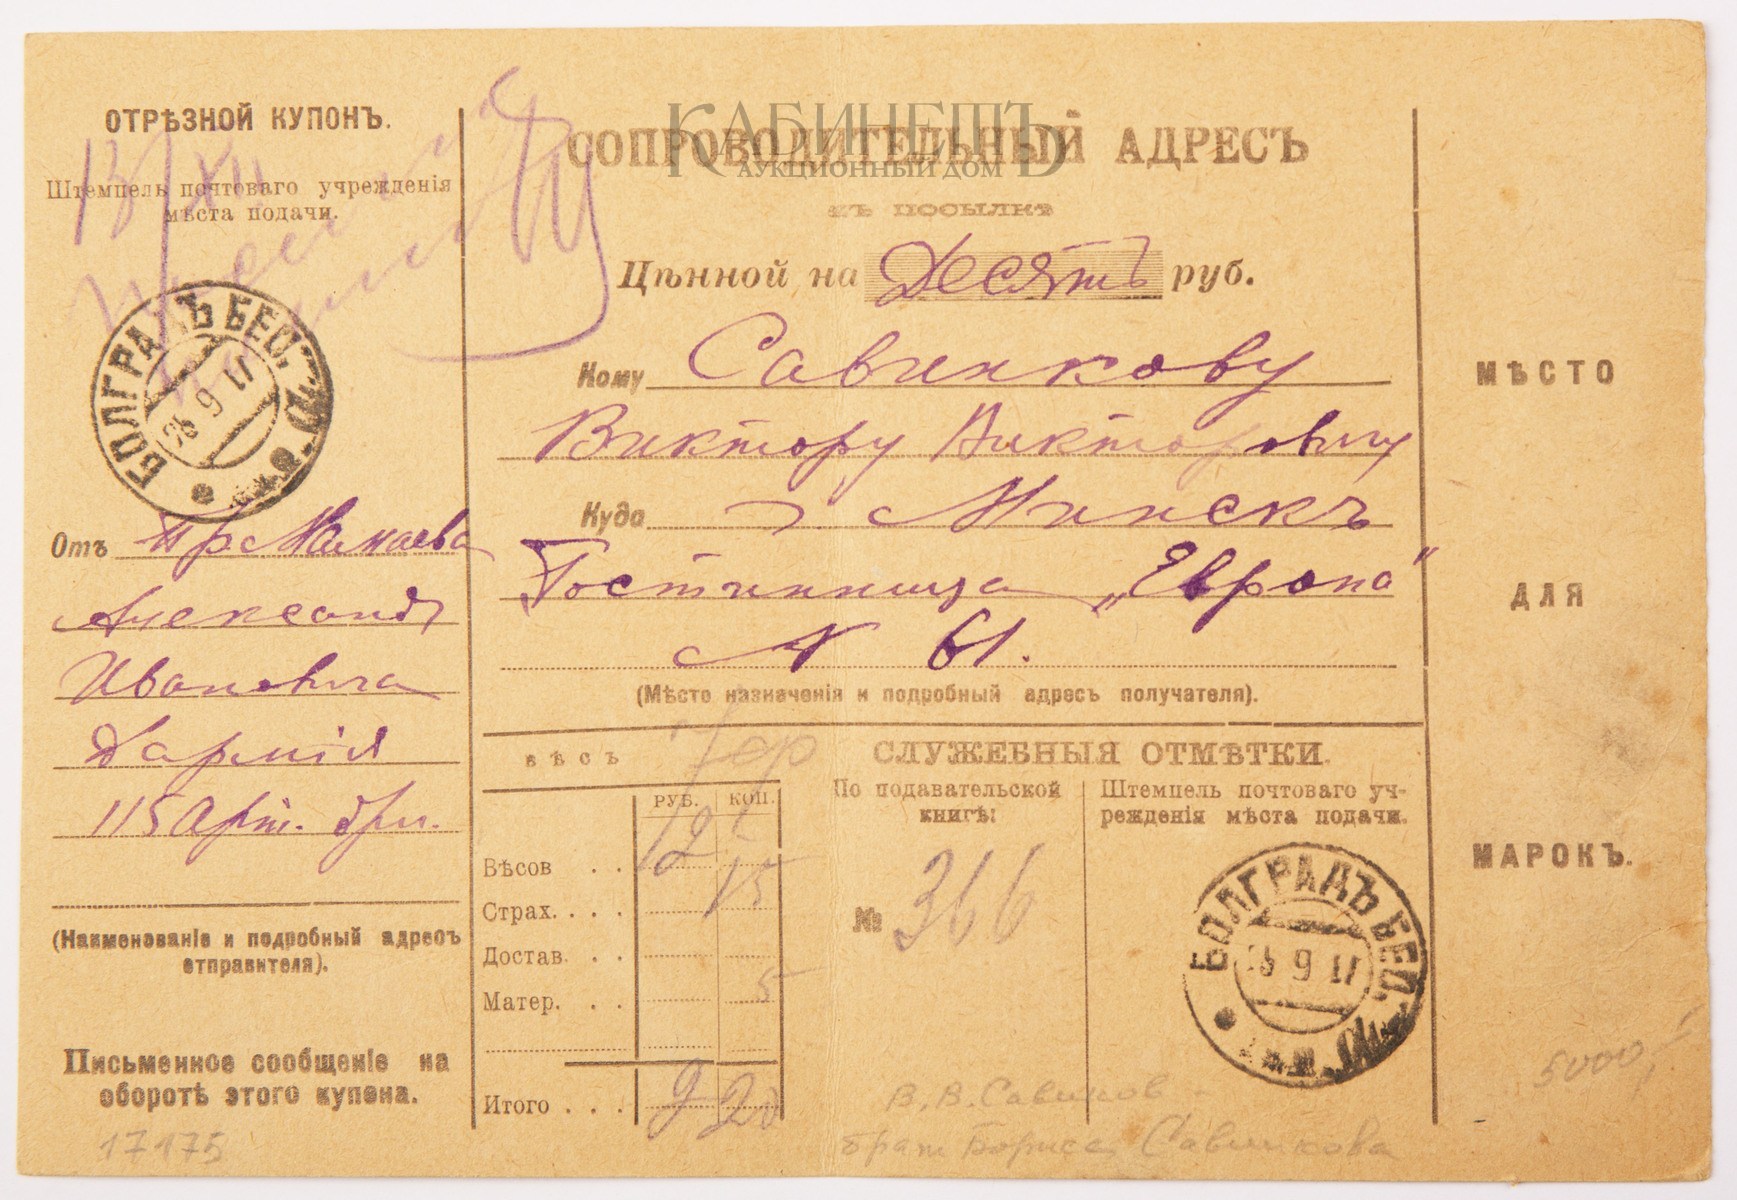 ОТРѢЗНОЙ КУПОНЪ.
Штемпель почтоваго учрежденія
мѣста подачи.
13/XII
БОЛГРАДЪ БЕС.
26 9 17
Отъ Пр. Мамаева
Александ
Ивановича
Д армія
115 Арт. бриг.
(Наименованіе и подробный адресъ
отправителя).
Письменное сообщеніе на
оборотѣ этого купона.
17175
КАБИНЕТЪ
АУКЦИОННЫЙ ДОМ
СОПРОВОДИТЕЛЬНЫЙ АДРЕСЪ
КЪ ПОСЫЛКѢ
Цѣнной на Десять руб.
Кому Савинкову
Виктору Викторовичу
Куда г. Минскъ
Гостинница „Европа"
№ 61.
(Мѣсто назначенія и подробный адресъ получателя).
ВѢСЪ
РУБ. КОП.
Вѣсов . .
Страх. . . . 15
Достав. . .
Матер. . . 5
Итого . . . 2 20
СЛУЖЕБНЫЯ ОТМѢТКИ.
По подавательской
книгѣ:
№ 366
Штемпель почтоваго уч-
режденія мѣста подачи.
БОЛГРАДЪ БЕС.
26 9 17
В. В. Савинков -
брат Бориса Савинкова
МѢСТО
ДЛЯ
МАРОКЪ.
5000,-